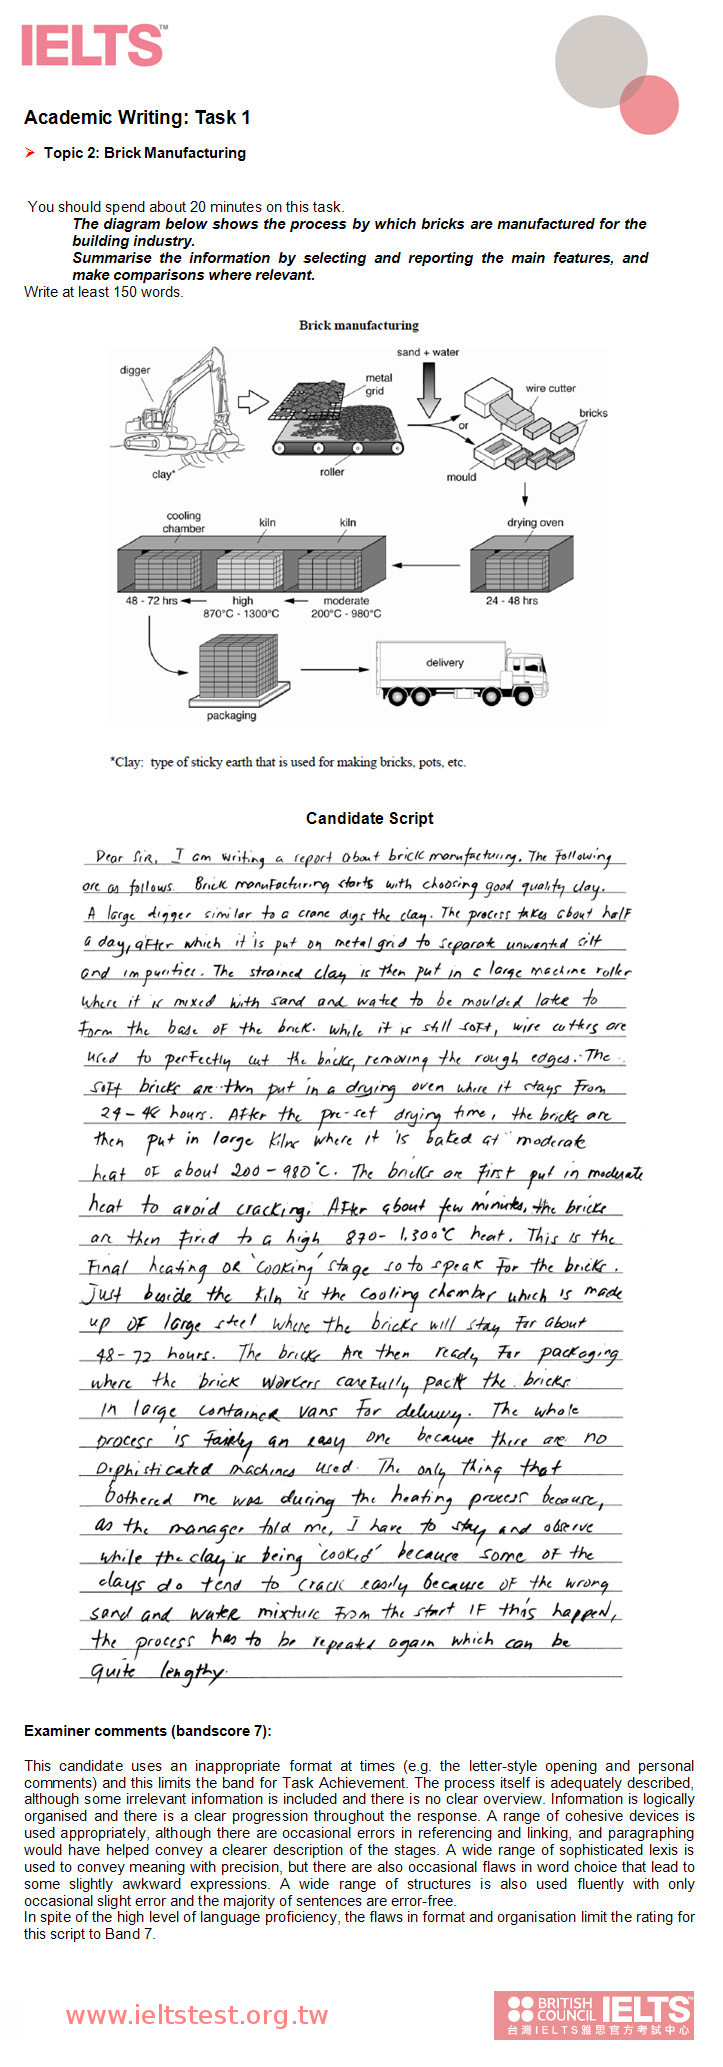 IELTS™
Academic Writing: Task 1
Topic 2: Brick Manufacturing
You should spend about 20 minutes on this task.
The diagram below shows the process by which bricks are manufactured for the
building industry.
Summarise the information by selecting and reporting the main features, and
make comparisons where relevant.
Write at least 150 words.
Brick manufacturing
digger
clay*
metal
grid
roller
sand + water
or
wire cutter
bricks
mould
drying oven
24 - 48 hrs
cooling
chamber
kiln
kiln
48 - 72 hrs
high
870°C - 1300°C
moderate
200°C - 980°C
packaging
delivery
*Clay: type of sticky earth that is used for making bricks, pots, etc.
Candidate Script
Dear Sir, I am writing a report about brick manufacturing. The following
are as follows. Brick manufacturing starts with choosing good quality clay.
A large digger similar to a crane digs the clay. The process takes about half
a day, after which it is put on metal grid to separate unwanted silt
and impurities. The strained clay is then put in a large machine roller
where it is mixed with sand and water to be moulded late to
form the base of the brick. While it is still soft, wire cutters are
used to perfectly cut the bricks, removing the rough edges. The
soft bricks are then put in a drying oven where it stays from
24-48 hours. After the pre-set drying time, the bricks are
then put in large kilns where it is baked at moderate
heat of about 200-980°C. The bricks are first put in moderate
heat to avoid cracking. After about few minutes, the bricks
are then fired to a high 870-1,300°C heat. This is the
final heating or 'cooking' stage so to speak for the bricks.
Just beside the kiln is the cooling chamber which is made
up of large steel where the bricks will stay for about
48-72 hours. The bricks are then ready for packaging
where the brick workers carefully pack the bricks
in large container vans for delivery. The whole
process is fairly an easy one because there are no
sophisticated machines used. The only thing that
bothered me was during the heating process because,
as the manager told me, I have to stay and observe
while the clay is being 'cooked' because some of the
clays do tend to crack easily because of the wrong
sand and water mixture from the start IF this happen,
the process has to be repeated again which can be
quite lengthy.
Examiner comments (bandscore 7):
This candidate uses an inappropriate format at times (e.g. the letter-style opening and personal
comments) and this limits the band for Task Achievement. The process itself is adequately described,
although some irrelevant information is included and there is no clear overview. Information is logically
organised and there is a clear progression throughout the response. A range of cohesive devices is
used appropriately, although there are occasional errors in referencing and linking, and paragraphing
would have helped convey a clearer description of the stages. A wide range of sophisticated lexis is
used to convey meaning with precision, but there are also occasional flaws in word choice that lead to
some slightly awkward expressions. A wide range of structures is also used fluently with only
occasional slight error and the majority of sentences are error-free.
In spite of the high level of language proficiency, the flaws in format and organisation limit the rating for
this script to Band 7.
www.ieltstest.org.tw
BRITISH
COUNCIL
IELTS™
台灣IELTS雅思官方考試中心